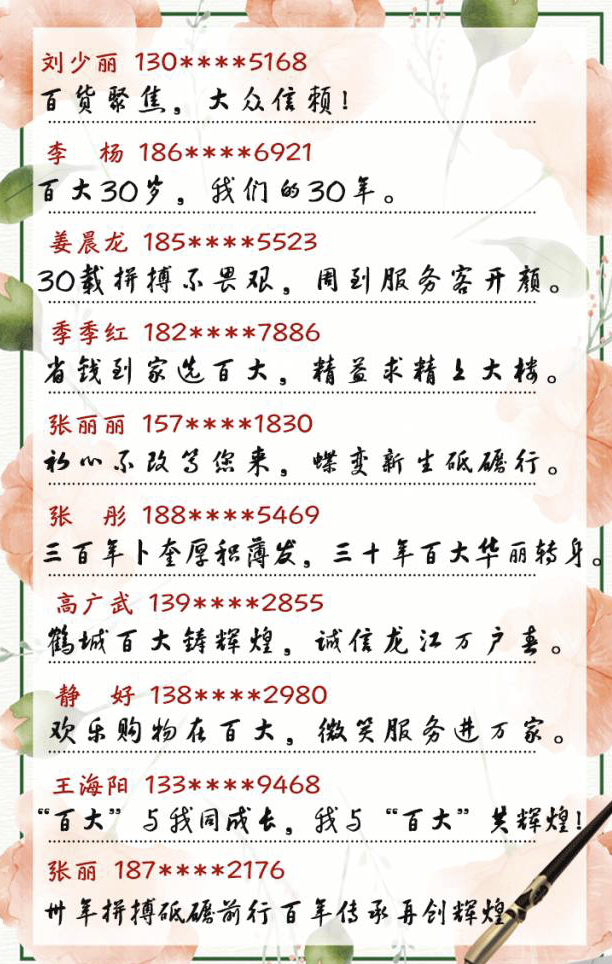 刘少丽 130****5168
百货聚焦，大众信赖！
李 杨 186****6921
百大30岁，我们的30年。
姜晨龙 185****5523
30载拼搏不畏艰，周到服务客开颜。
季季红 182****7886
省钱到家选百大，精益求精上大楼。
张丽丽 157****1830
初心不改等您来，蝶变新生砥砺行。
张 彤 188****5469
三百年卜奎厚积薄发，三十年百大华丽转身。
高广武 139****2855
鹤城百大铸辉煌，诚信龙江万户春。
静 好 138****2980
欢乐购物在百大，微笑服务进万家。
王海阳 133****9468
“百大”与我同成长，我与“百大”共辉煌！
张丽 187****2176
卅年拼搏砥砺前行百年传承再创辉煌。